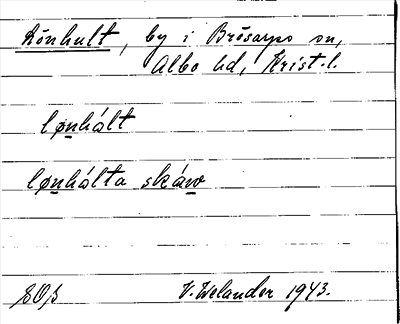 Lönhult, by i Brösarps sn,
Albo hd, Krist. l.
lønhált
lønhálta skáw
V. Welander 1943.